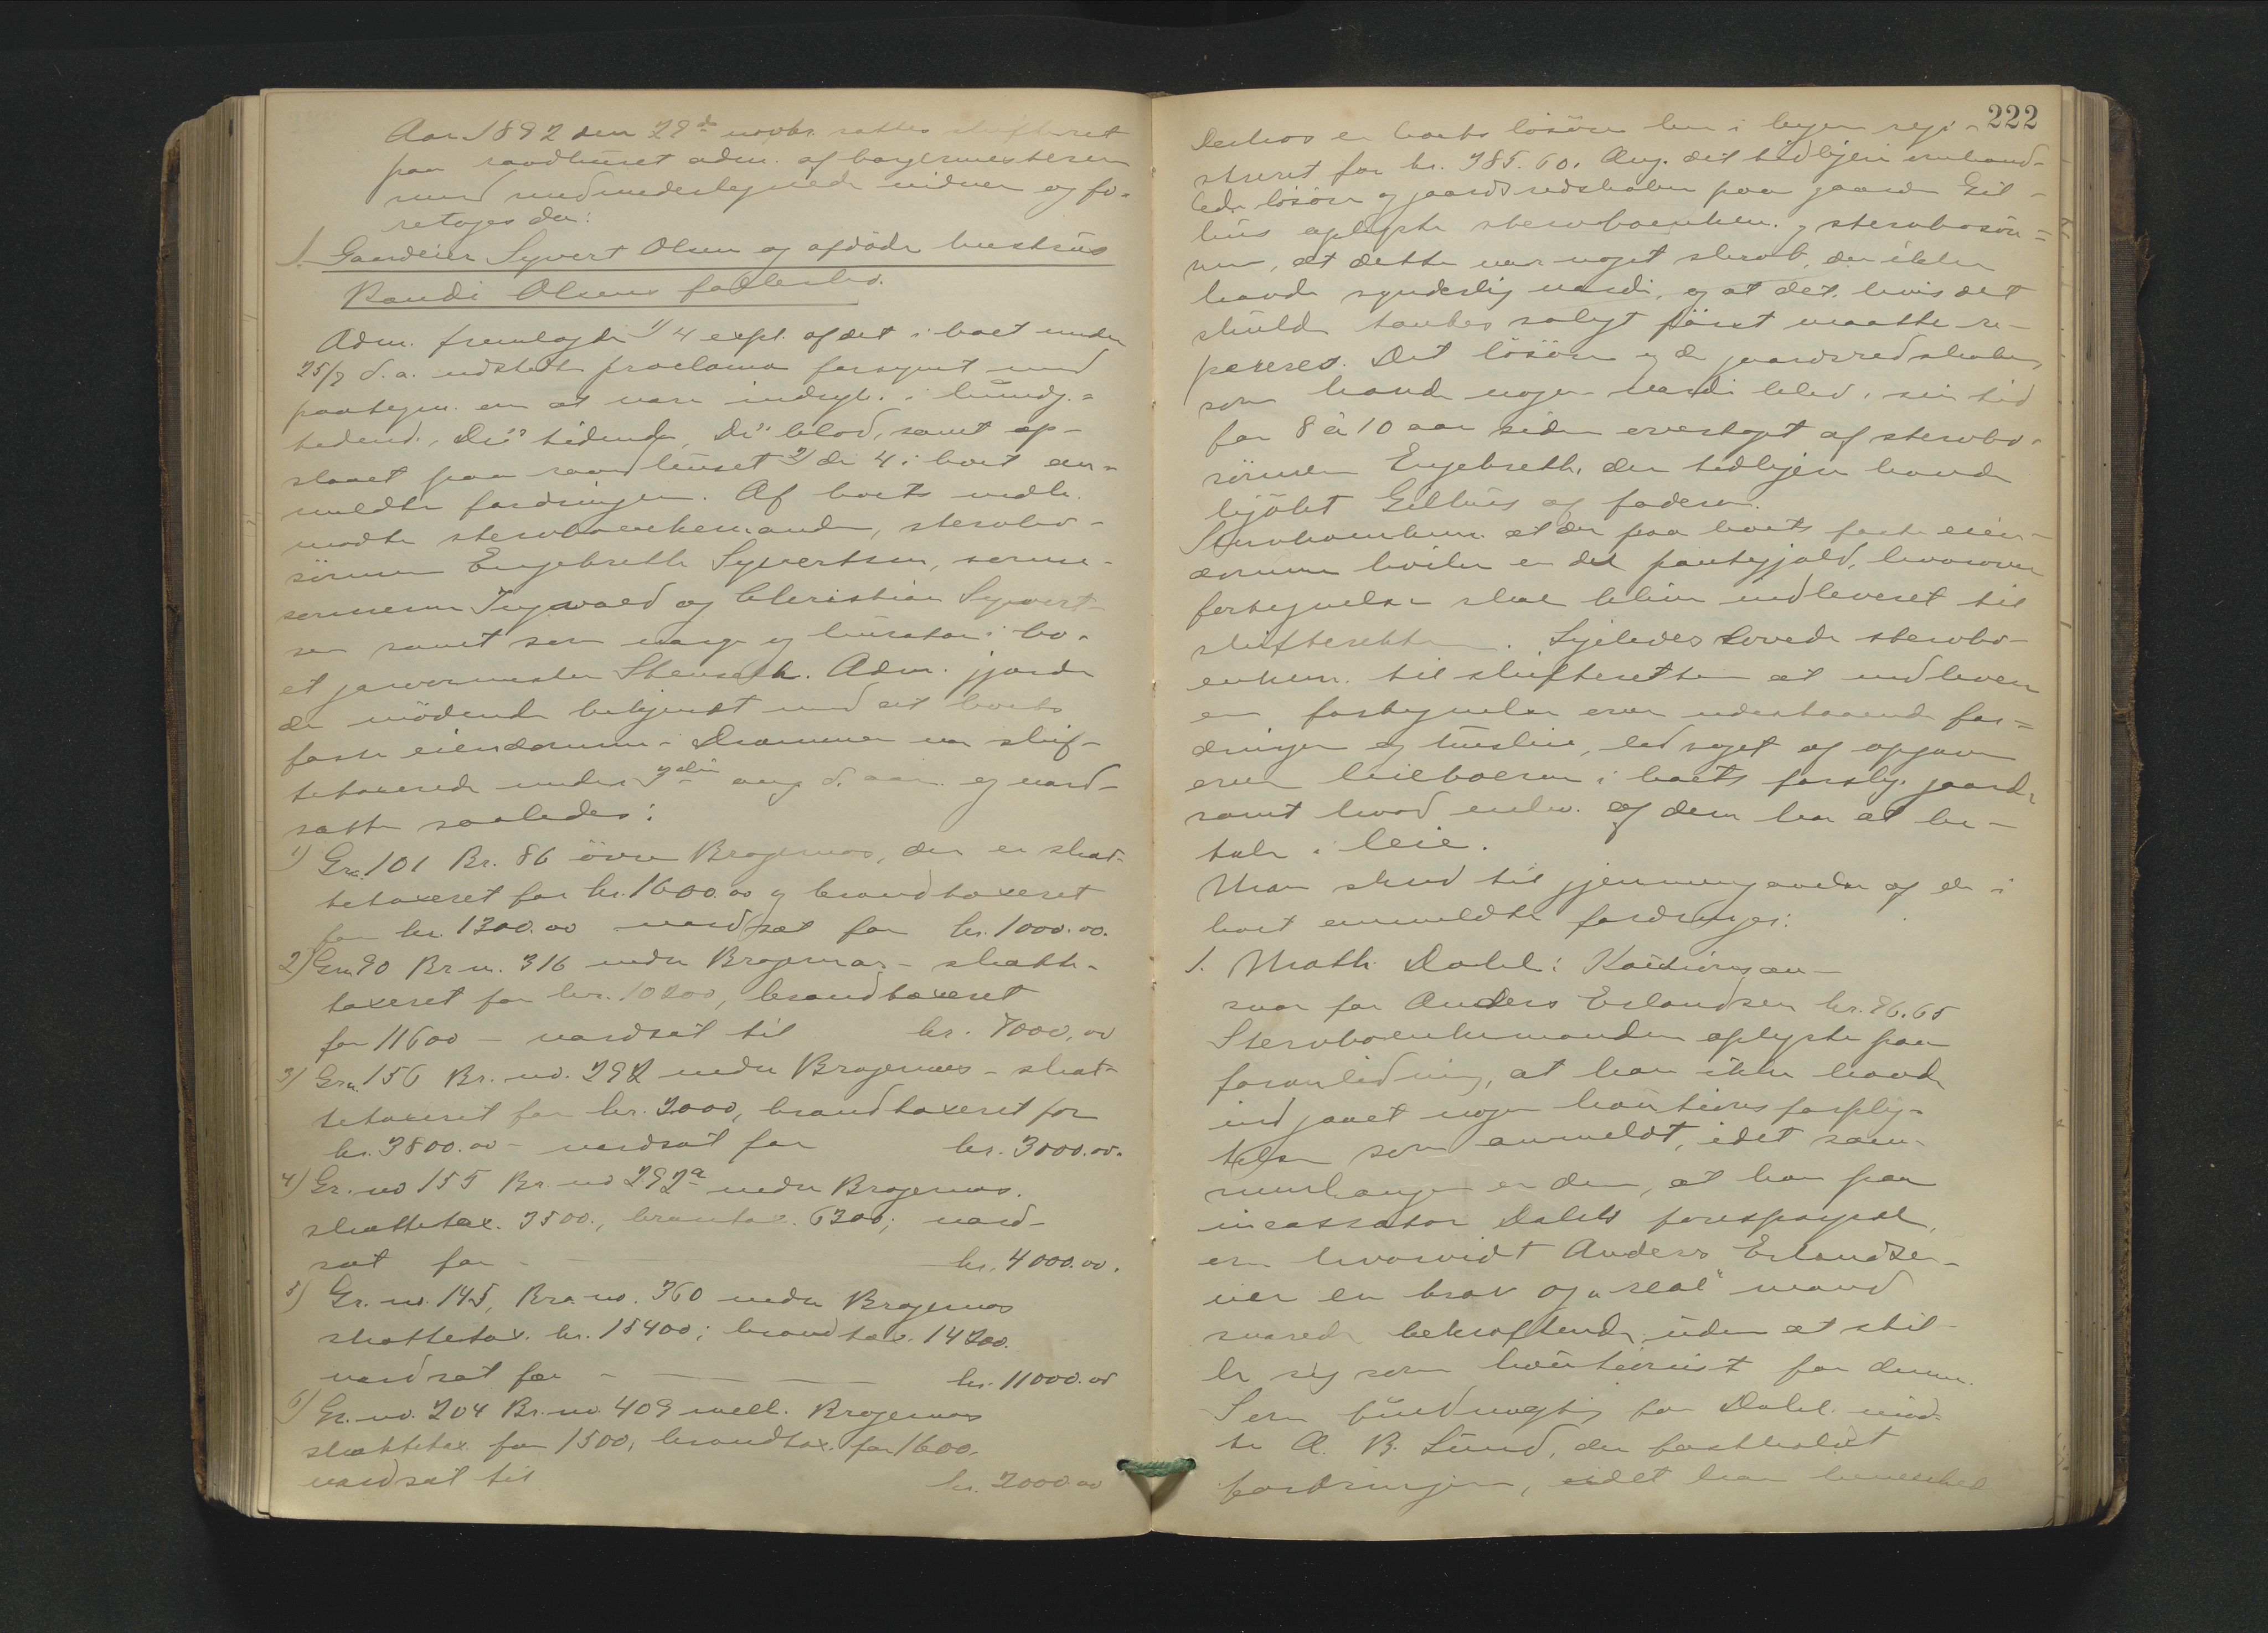 Aar 1892 den 29de novbr. sattes skifteret
paa raadhuset adm. af borgermesteren
med medundertegnede vidner og fo-
retoges da:
1. Gaardeier Syvert Olsen og afdöde hustrus
Randi Olsens fællesbo.
Adm. fremlagde 1) 4 expl. af det i boet under
25/7 d. a. udstedte proclama forsynet med
paategn. om at være indryk. i kundg.=
tidend., Dr. tidende, Dr. blad, samt op-
slaaet paa raadhuset 2) de 4 i boet an-
meldte fordringer. Af boets vedk.
mödte stervboenkemanden, stervbo-
sönnen Engebreth Syvertsen, sönne-
sönnerne Ingvald og Christian Syvert-
sen samt som værge og kurator i bo-
et garvermester Stenseth. Adm. gjorde
de mödende bekjendt med at boets
faste eiendomme i Drammen var skif-
tetaxerede under 9de aug. d. aar. og værd-
satte saaledes:
1) Gr. 101 Br. 86 övre Bragernæs, der er skat-
tetaxeret for kr. 1600.00 og brandtaxeret
for kr. 1300.00 værdsat for kr. 1000.00.
2) Grn 90 Brn. 316 nedre Bragernæs - skatte-
taxeret for kr. 10200, brandtaxeret
for 11600 - værdsat til kr. 7000,00
3) Grn. 156 Br. no. 292 nedre Bragernæs - skat-
tetaxeret for kr. 2000, brandtaxeret for
kr. 3800.00 - værdsat for kr. 3000.00.
4) Gr. no 155 Br. no 292a nedre Bragernæs.
skattetax. 3500., brantax. 6300; værd-
sat for - kr. 4000.00.
5) Gr. no. 145, Br. no. 360 nedre Bragernæs
skattetax. kr. 15400; brandtax. 14200.
værdsat for - kr. 11000.00
6) Gr. no. 204 Br. no. 409 mell. Bragernæs
skattetax for 1500, brandtax. for 1600,
værdsat til kr. 2000.00
222
Derhos er boets lösöre her i byen regi-
streret for kr. 385.60. Ang. det tidligere omhand-
lede lösöre og gaardsredskaber paa gaarden Gil-
hus oplyste stervboenkem. og stervbosön=
nen, at dette var noget skrab, der ikke
havde synderlig værdi, og at det, hvis det
skulde tænkes solgt först maatte re-
pareres. Det lösöre og de gaardsredskaber,
som havde nogen værdi blev i sin tid
for 8 à 10 aar siden overtaget af stervbo-
sönnen Engebreth, der tidligere havde
kjöbt Gilhus af faderen.
Stervboenkem. at der paa boets faste eien-
domme hviler en del pantegjæld, hvorover
fortegnelse skal blive indleveret til
skifteretten. Ligeledes lovede stervbo-
enkem. til skifteretten at indlevere
en fortegnelse over udestaaende for=
dringer og husleie, ledsaget af opgave
over leieboerne i boets forskj. gaarde
samt hvad enhv. af dem har at be-
tale i leie.
Man skred til gjennemgaaelse af de i
boet anmeldte fordringer:
1. Math. Dahl: Kautionsan-
svar for Anders Erlandsen kr. 96.65
Stervboenkemanden oplyste paa
foranledning, at han ikke havde
indgaaet nogen kautionsforplig-
telse som anmeldt, idet sam-
menhængen er den, at han paa
incassator Dahls forespörgsel,
om hvorvidt Anders Erlandsen
var en brav og "real" mand
svarede bekræftende, uden at stil-
le sig som kautionist for denne.
Som fuldmægtig for Dahl möd-
te A. B. Lund, der fastholdt
fordringen, idet han